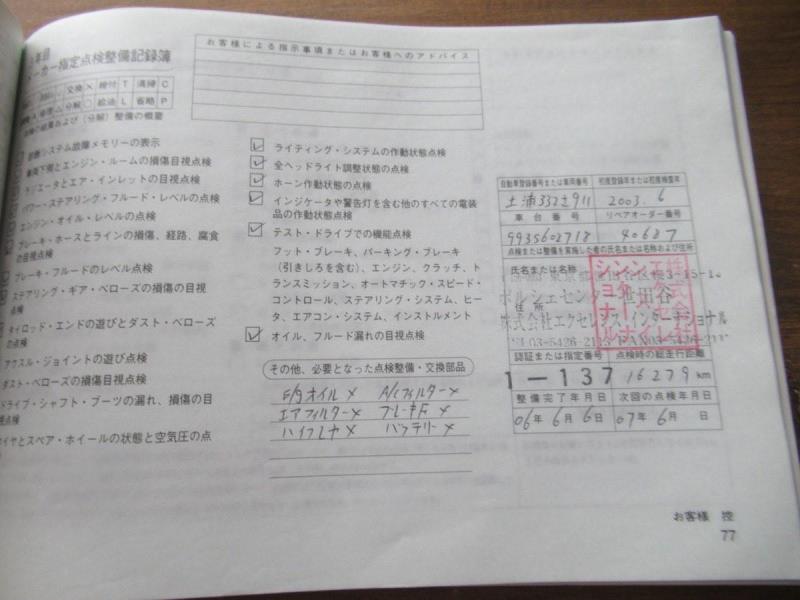 年目
メーカー指定点検整備記録簿
お客様による指示事項またはお客様へのアドバイス
交換 × 締付 T 清掃 C
分解 ○ 給油 L 省略 P
点検の結果および（分解）整備の概要
診断システム故障メモリーの表示
車両下側とエンジン・ルームの損傷目視点検
ラジエータとエア・インレットの目視点検
パワー・ステアリング・フルード・レベルの点検
エンジン・オイル・レベルの点検
ブレーキ・ホースとラインの損傷、経路、腐食
の目視点検
ブレーキ・フルードのレベル点検
ステアリング・ギア・ベローズの損傷の目視
点検
タイロッド・エンドの遊びとダスト・ベローズ
の点検
アクスル・ジョイントの遊び点検
ダスト・ベローズの損傷目視点検
ドライブ・シャフト・ブーツの漏れ、損傷の目
視点検
タイヤとスペア・ホイールの状態と空気圧の点
検
ライティング・システムの作動状態点検
全ヘッドライト調整状態の点検
ホーン作動状態の点検
インジケータや警告灯を含む他のすべての電装
品の作動状態点検
テスト・ドライブでの機能点検
フット・ブレーキ、パーキング・ブレーキ
（引きしろを含む）、エンジン、クラッチ、ト
ランスミッション、オートマチック・スピード・
コントロール、ステアリング・システム、ヒー
タ、エアコン・システム、インストルメント
オイル、フルード漏れの目視点検
その他、必要となった点検整備・交換部品
E/gオイル × A/cフィルター ×
エアフィルター × ブレーキF ×
ワイプレヤ × バッテリー ×
自動車登録番号または車両番号 初度登録年または初度検査年
土浦332さ911 2003. 6
車台番号 リペアオーダー番号
9935602718 40687
点検または整備を実施した者の氏名または名称および住所
氏名または名称
東京都世田谷区桜3-15-10
ポルシェセンター世田谷
住所
株式会社エクセレンス インターナショナル
03-5426-2113 FAX03-5426-
認証または指定番号 点検時の総走行距離
1-137 16279 km
整備完了年月日 次回の点検年月日
06年 6月 6日 07年 6月 日
お客様 控
77